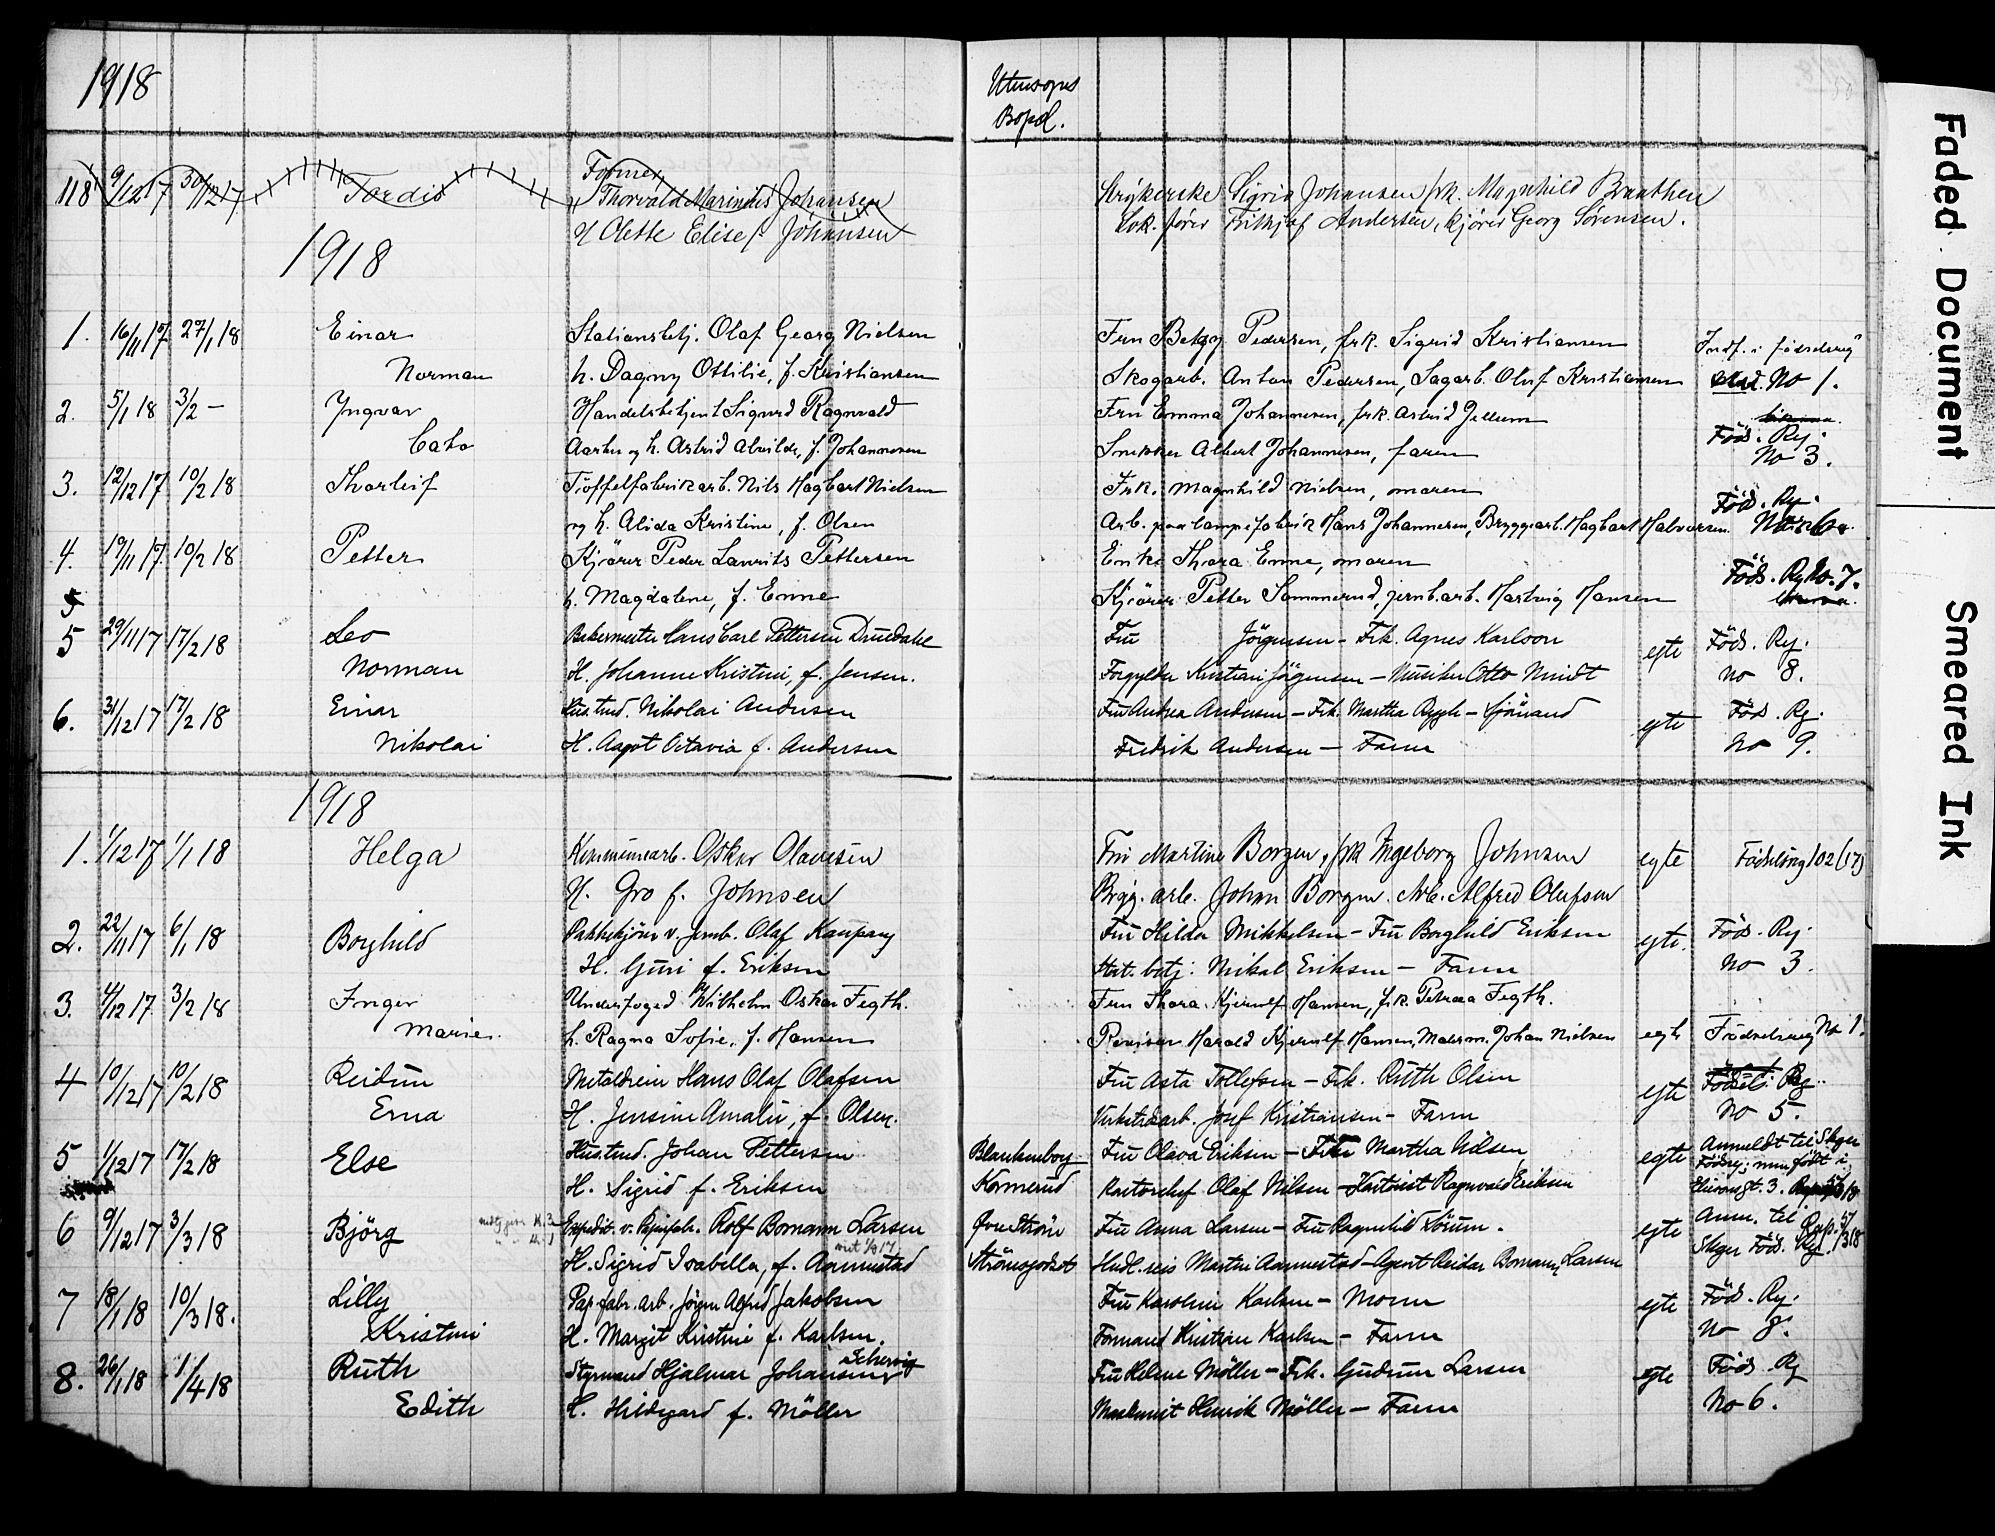 1918
Utensogns
Bopæl.
118 9/12 17 30/12 17 Tordis Former Thorvald Marinius Johansen Strykerske Sigrid Johansen frk. Magnhild Braathen
H Olette Elise f. Johansen Lok. fører Frithjof Andersen, kjører Georg Sørensen.
1918
1. 16/11 17 27/1 18 Einar Stationsbetj. Olaf Georg Nielsen Fru Betzy Pedersen, frk. Sigrid Kristiansen Indf. i fødselsreg
Norman h. Dagny Ottilie, f. Kristiansen Skogarb. Anton Pedersen, Sagarb. Oluf Kristiansen No 1.
2. 5/1 18 3/2 - Yngvar Handelsbetjent Sigurd Ragnvald Fru Emma Johannesen, frk. Astrid Jellum
Cato Aarbu og h. Astrid Alvilde, f. Johannesen Snekker Albert Johannesen, faren Föd. Reg. No 3.
3. 12/12 17 10/2 18 Thorleif Töffelfabrikarb. Nils Hagbart Nielsen Frk. Magnhild Nielsen, moren Föd. Reg.
og h. Alida Kristine, f. Olsen Arb. paa lampefabrik Hans Johannesen, Bryggearb. Hagbart Halvorsen No
4. 19/11 17 10/2 18 Petter Kjörer Peder Laurits Pettersen Enke Thora Enne, moren Föd. Reg No. 7.
h. Magdalene, f. Enne Kjörer Petter Sommerud, jernb.arb. Hartvig Hansen
5 29/11 17 17/2 18 Leo Bakermester Hans Carl Pettersen Druedahl Fru Jörgensen - Frk. Agnes Karlson egte Föd. Reg.
Norman H. Johanne Kristine, f. Jensen. Forgylder Kristian Jörgensen - Musiker Otto Nmidt no 8.
6. 31/12 17 17/2 18 Einar Hus.tmd. Nikolai Andersen Fru Andrea Andersen - Frk. Martha Rygh - Sjömand egte Föd. Reg.
Nikolai H. Aagot Octavia f. Andersen Fredrik Andersen - Faren no 9.
1918
1. 1/12 17 1/1 18 Helga Kommunearb. Oskar Olavesen Fru Martine Borgen, frk Ingeborg Johnsen egte Fødselsreg 102 (17)
H. Gro f. Johnsen Brygg. arb. Johan Borgen. Arb. Alfred Olufsen
2. 22/11 17 6/1 18 Borghild Pakhskjörer v. Jernb. Olaf Kaupang Fru Hilda Mikkelsen - Fru Borghild Eriksen egte. Föd. Reg.
H. Guri f. Eriksen Stat. betj. Mikal Eriksen - Faren no 3.
3. 4/12 17 3/2 18 Inger Underfoged Wilhelm Oskar Fegth. Fru Thora Kjerulf Hansen, frk. Petrea Fegth.
Marie. h. Ragna Sofie, f. Hansen Revisor Harald Kjerulf Hansen, Malerm. Johan Nielsen egte Fødselsreg No 1.
4 10/12 17 10/2 18 Reidun Metaldreier Hans Olaf Olafsen Fru Asta Tollefsen - Frk. Ruth Olsen egte Födsels. Reg.
Erna H. Jensine Amalie, f. Olsen. Verkstedsarb. Josef Kristiansen - Faren No 5.
5 1/12 17 17/2 18 Else Hus.tmd. Johan Pettersen Blankenborg Fru Olava Eriksen - Fru Martha Nilsen egte Anmeldt til Skger
H. Sigrid f. Eriksen Komerud Kontorchef Olaf Nilsen - Kartonist Ragnvald Eriksen
6 9/12 17 3/3 18 Björg Expedit. v. Papirfabr. Rolf Bomann Larsen Övre Ström Fru Anna Larsen - Fru Ragnhild Sörum. egte Anm. til
H. Sigrid Isabella, f. Aamestad Strömsgodset Hndl.reis Martin Aamestad - Agent Reidar Bomann Larsen Skger Föd. Reg.
7 18/1 18 10/3 18. Lilly Pap.fabr.arb. Jörgen Alfred Jakobsen Fru Karoline Karlsen - Moren egte Föd. Reg.
Kristine H. Margit Kristine f. Karlsen. Formand Kristian Karlsen - Faren no 8.
8. 26/1 18 1/4 18 Ruth Styrmand Hjalmar Johansen Schervig Fru Helene Møller - Frk. Gudrun Larsen egte Föd. Reg
Edith H. Hildegard f. Möller Maskinist Henrik Møller - Faren No 6.
Faded Document
Smeared Ink